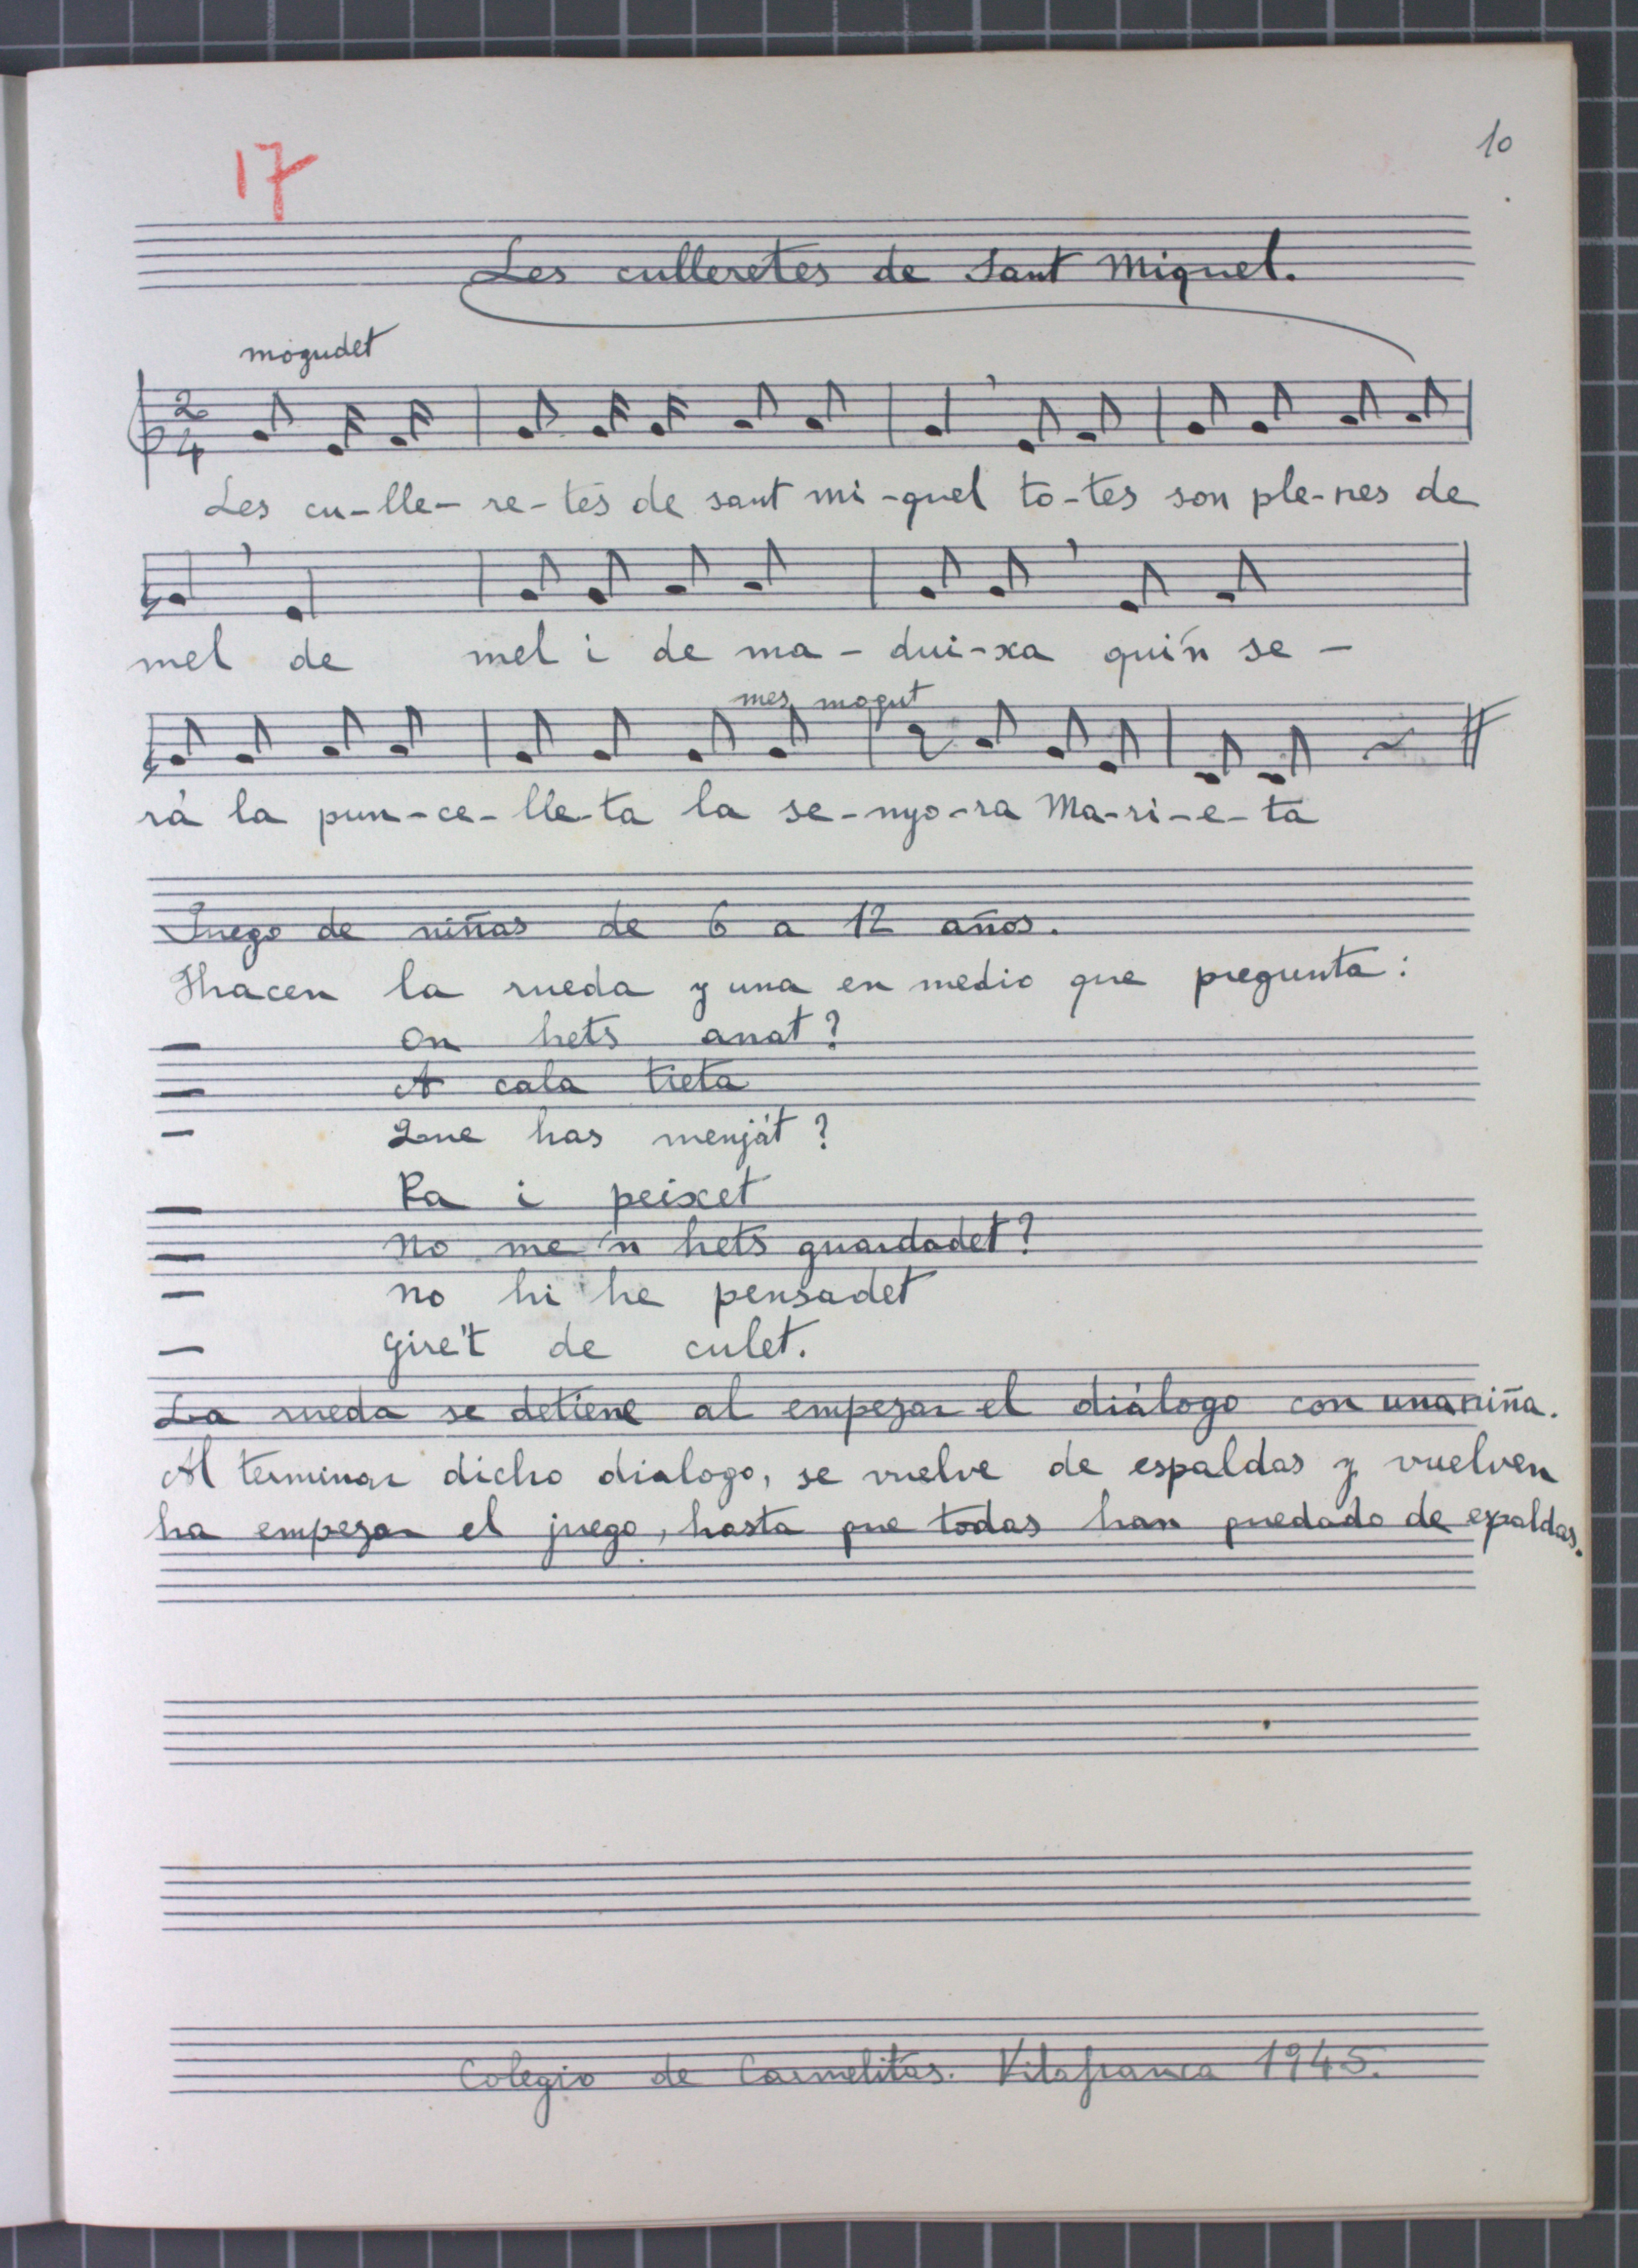 10
17
Les culleretes de Sant Miquel.
mogudet
2
4
Les cu-lle- re-tes de sant mi-quel to-tes son ple-nes de
mel de mel i de ma-dui-xa qui'n se-
mes mogut
rá la pun-ce-lle-ta la se-nyo-ra Ma-ri-e-ta
Juego de niñas de 6 a 12 años.
Hhacen la rueda y una en medio que pregunta:
— On hets anat?
— A cala tieta
— Que has menját?
— Pa i peixet
— No me'n hets guardadet?
— no hi he pensadet
— gire't de culet.
La rueda se detiene al empezar el diálogo con una niña.
Al terminar dicho dialogo, se vuelve de espaldas y vuelven
ha empezar el juego, hasta que todas han quedado de espaldas.
Colegio de Carmelitas. Vilafranca 1945.